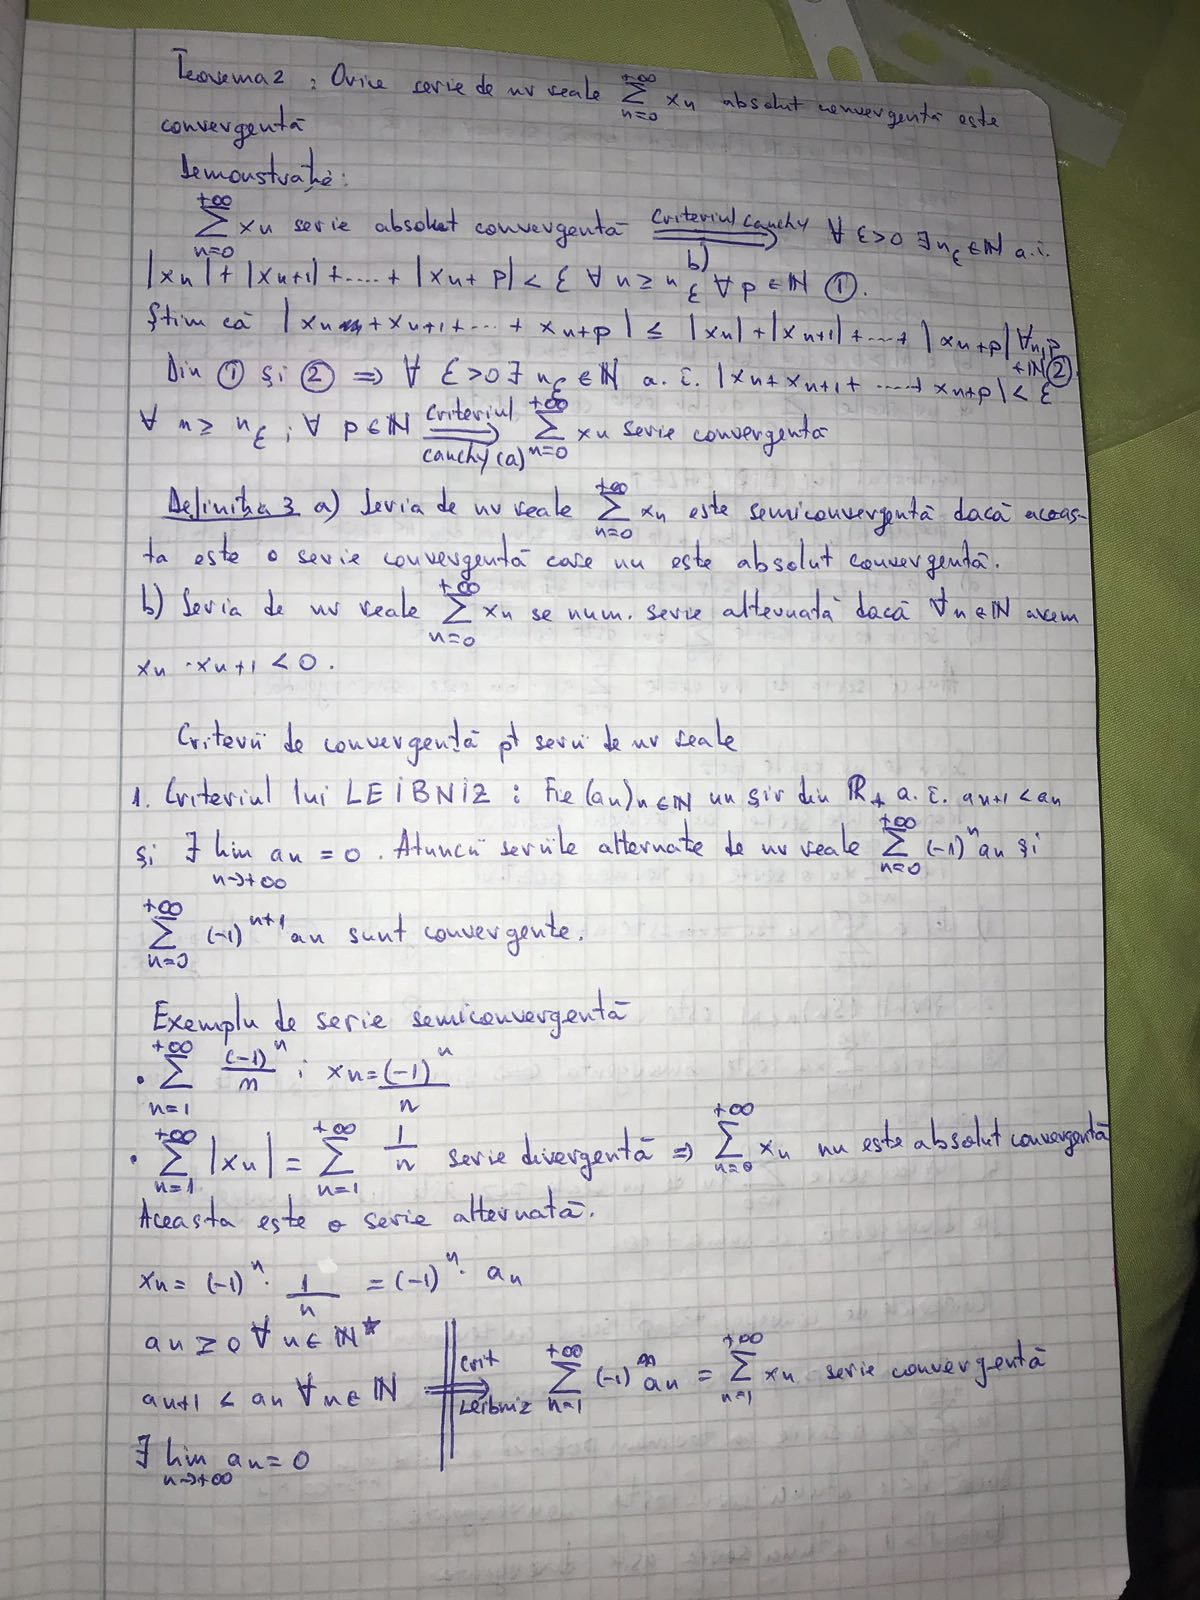 Teorema 2 : Orice serie de nr reale \sum_{n=0}^{+∞} xn absolut convergentă este
convergentă
Demonstrație:
\sum_{n=0}^{+∞} xn serie absolut convergentă \xRightarrow[b)]{Criteriul Cauchy} ∀ ε>0 ∃ n_ε ∈ ℕ a.î.
|xn| + |xn+1| + .... + |xn+p| < ε ∀ n ≥ n_ε ∀ p ∈ ℕ ①.
Știm că |xn + xn+1 + ... + xn+p| ≤ |xn| + |xn+1| + ... + |xn+p| ∀n,p ∈ ℕ ②.
Din ① și ② ⇒ ∀ ε>0 ∃ n_ε ∈ ℕ a.î. |xn + xn+1 + ..... + xn+p| < ε
∀ n ≥ n_ε ; ∀ p ∈ ℕ \xRightarrow[Cauchy (a)]{Criteriul} \sum_{n=0}^{+∞} xn serie convergentă
Definiția 3 a) Seria de nr reale \sum_{n=0}^{+∞} xn este semiconvergentă dacă aceas-
ta este o serie convergentă care nu este absolut convergentă.
b) Seria de nr reale \sum_{n=0}^{+∞} xn se num. serie alternată dacă ∀ n ∈ ℕ avem
xn · xn+1 < 0.
Criterii de convergență pt serii de nr reale
1. Criteriul lui LEIBNIZ : Fie (an)n∈ℕ un șir din ℝ+ a.î. an+1 < an
și ∃ \lim_{n→+∞} an = 0. Atuncii seriile alternate de nr reale \sum_{n=0}^{+∞} (-1)^n an și
\sum_{n=0}^{+∞} (-1)^{n+1} an sunt convergente.
Exemplu de serie semiconvergentă
• \sum_{n=1}^{+∞} \frac{(-1)^n}{n} ; xn = \frac{(-1)^n}{n}
• \sum_{n=1}^{+∞} |xn| = \sum_{n=1}^{+∞} \frac{1}{n} serie divergentă ⇒ \sum_{n=0}^{+∞} xn nu este absolut convergentă
Aceasta este o serie alternată.
xn = (-1)^n · \frac{1}{n} = (-1)^n · an
an ≥ 0 ∀ n ∈ ℕ*
an+1 < an ∀ n ∈ ℕ \xRightarrow[Leibniz]{Crit} \sum_{n=1}^{+∞} (-1)^n an = \sum_{n=1}^{+∞} xn serie convergentă
∃ \lim_{n→+∞} an = 0